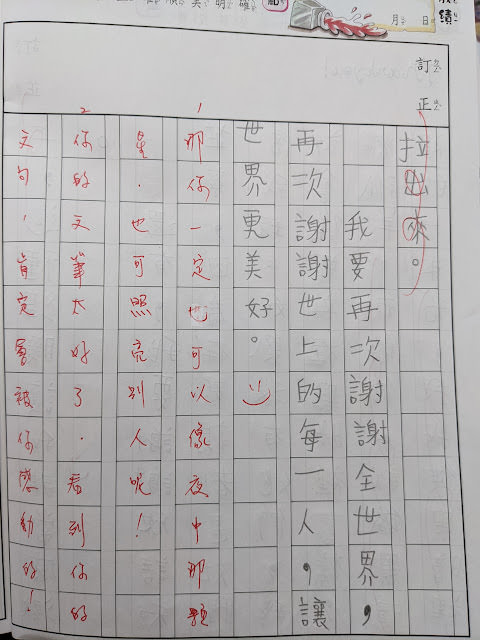 成績
月 日
訂正
拉出來。
我要再次謝謝全世界，
再次謝謝世上的每一人，讓
世界更美好。
1
那你一定也可以像夜中那顆
星．也可照亮別人呢！
2
你的文筆太好了．看到你的
文句，肯定會被你感動的！